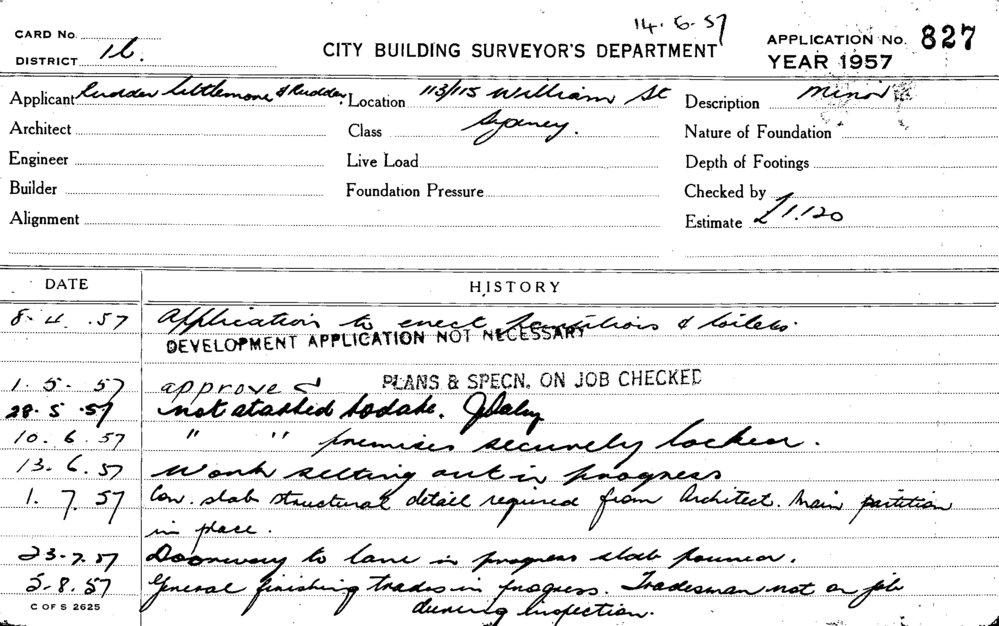 14.6.57
CARD No.
DISTRICT 16.
CITY BUILDING SURVEYOR'S DEPARTMENT
APPLICATION No. 827
YEAR 1957
Applicant Rudder Littlemore & Rudder. Location 113/115 William St Description Minor
Architect Class Sydney. Nature of Foundation
Engineer Live Load Depth of Footings
Builder Foundation Pressure Checked by
Alignment Estimate £1.120
DATE HISTORY
8.4.57 Application to erect partitions & toilets.
DEVELOPMENT APPLICATION NOT NECESSARY
1.5.57 approved PLANS & SPECN. ON JOB CHECKED
28.5.57 not started todate. JDaley
10.6.57 " " premises securely locked.
13.6.57 Work setting out in progress
1.7.57 Con. slab structural detail required from Architect. Main partition
in place.
23.7.57 Doorway to lane in progress slab poured.
5.8.57 General finishing trades in progress. Tradesman not on job
during inspection.
C OF S 2625